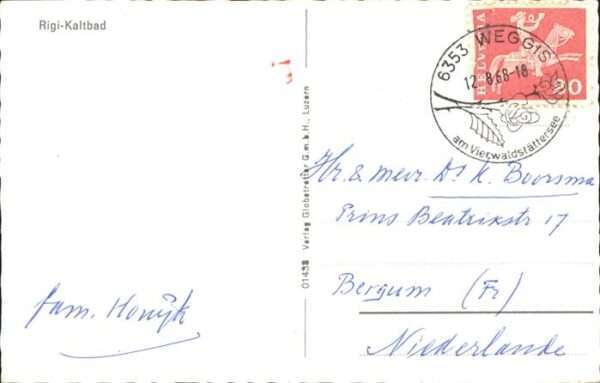 Rigi-Kaltbad
HELVETIA
20
6353 WEGGIS
12.-8.68-18
am Vierwaldstättersee
01438 Verlag Globetrotter G.m.b.H., Luzern
Hr. & mevr. Ds K. Boorsma
Prins Beatrikstr 17
Bergum (Fr)
Niederlande
fam. Honijk